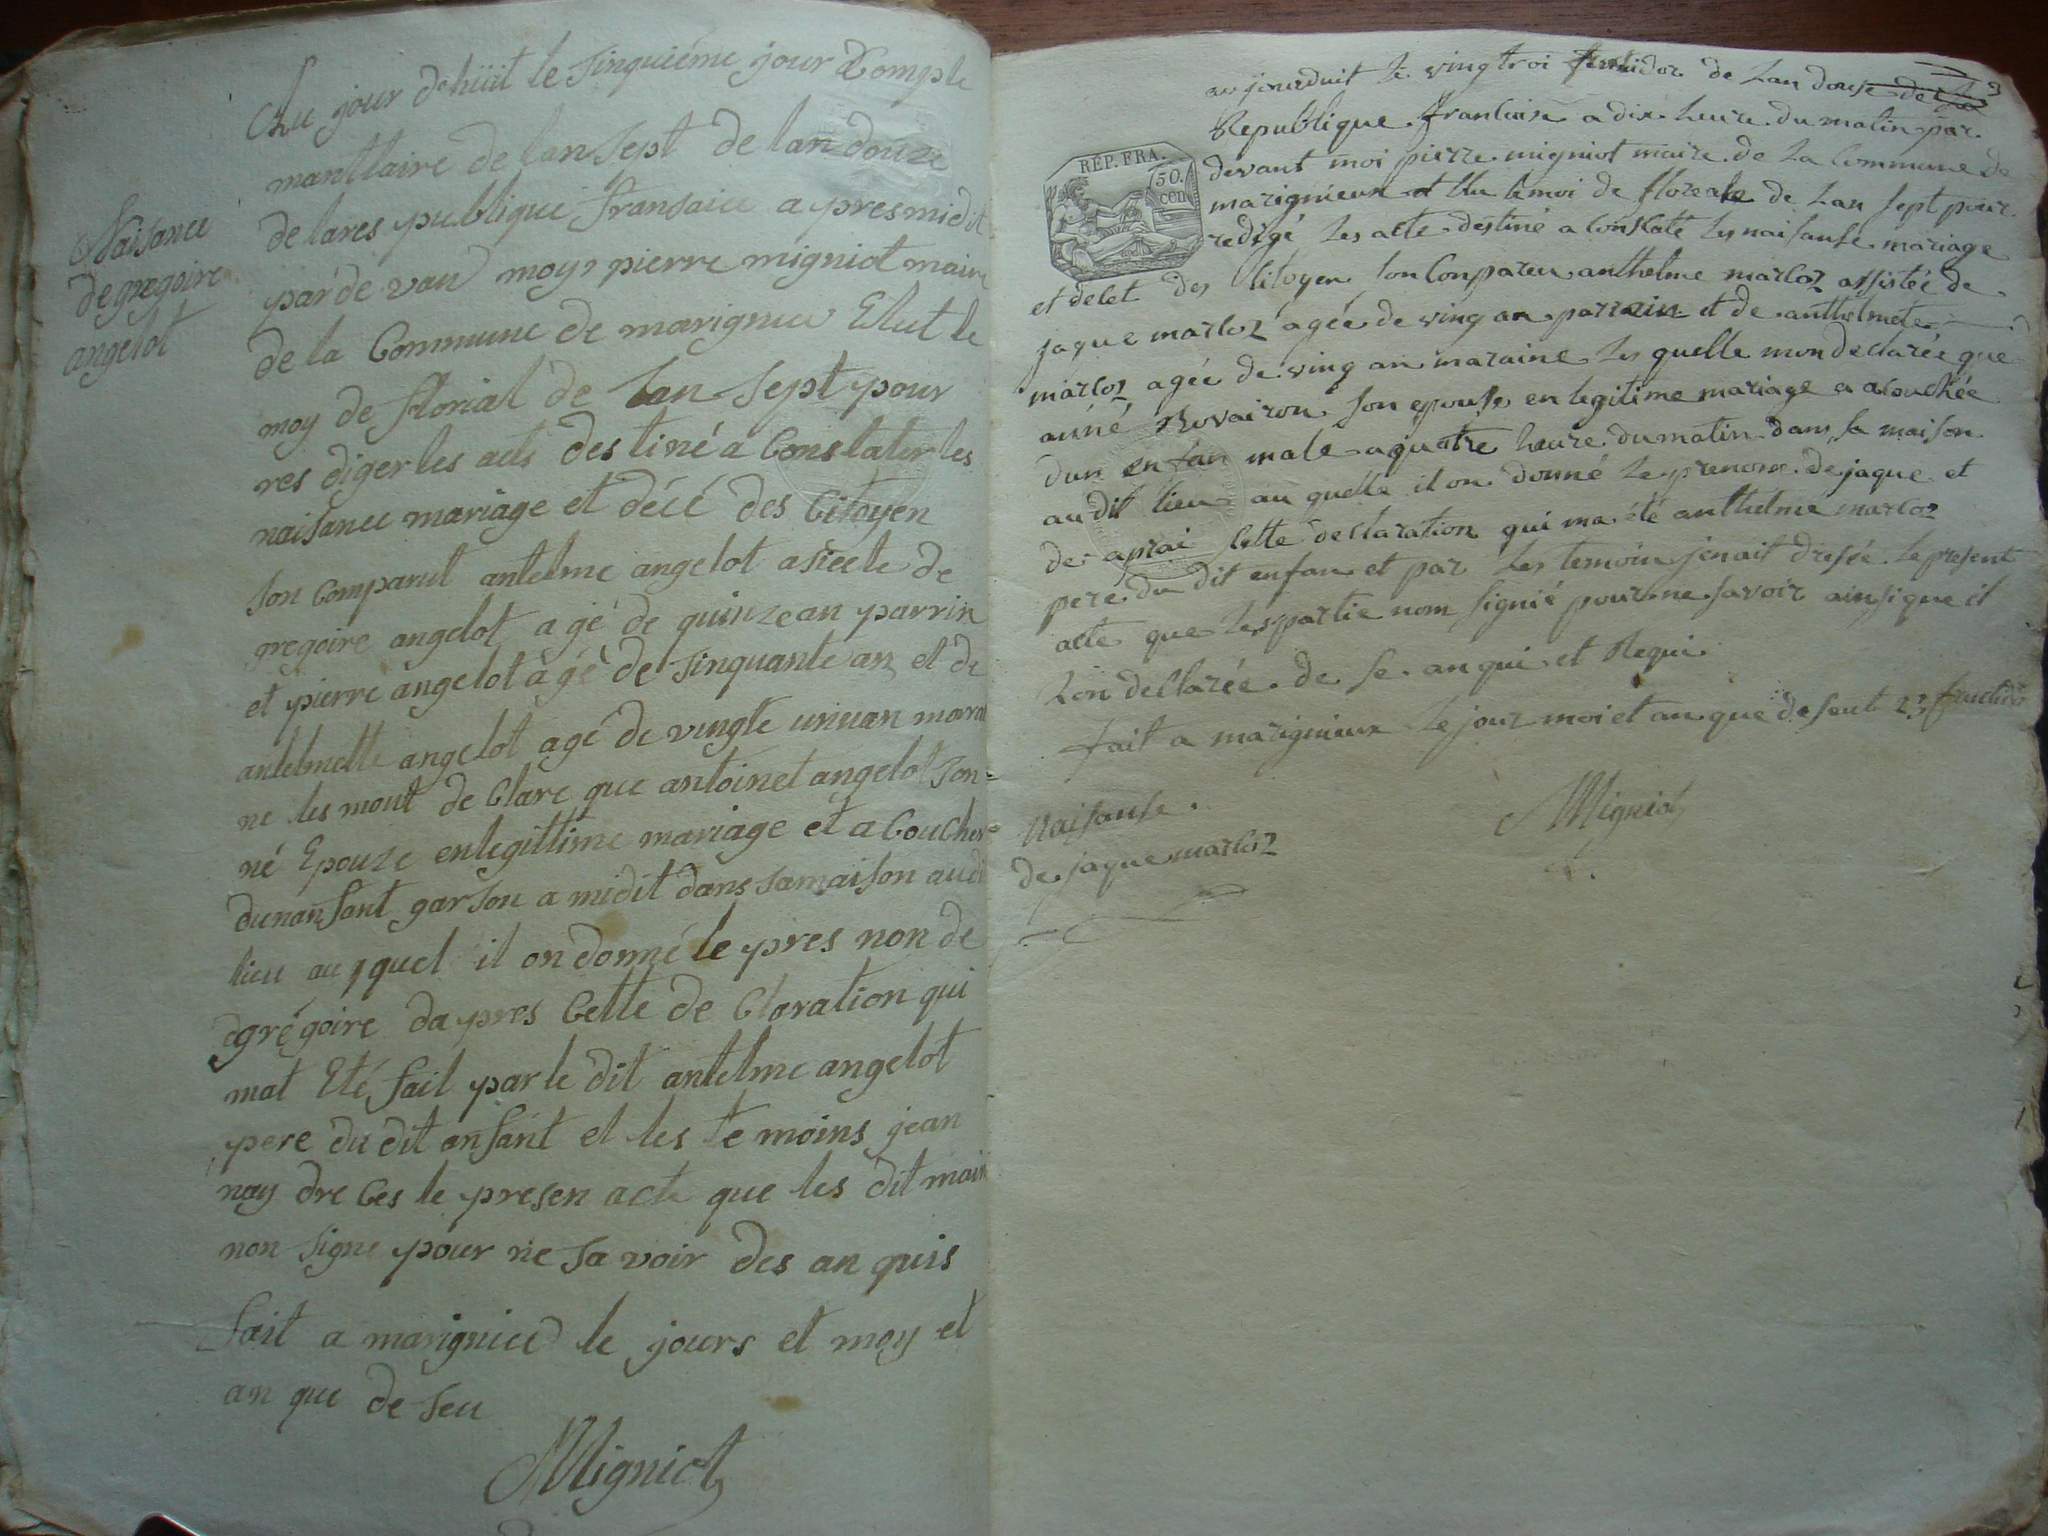 Au jour dehüit le sinquiéme jour Comple
manttaire de lan sept de lan douze
de lares publique fransaice a presmidit
par de van moys pierre migniot maire
de la Commune de marignieu Elut le
moy de florial de Lan sept pour
res diger les acts des tiné a Constater les
naisance mariage et décé des Citoyen
son comparut antelme angelot asiecte de
gregoire angelot agé de quinze an parrin
et pierre angelot agé de sinquante an et de
antelmette angelot agé de vingte un an marai
ne les mont de Clare que antoinet angelot son=
né Epouze enlegittime mariage et a Coucher=
dunanfant garson a midit dans samaison audi
lieu au quel il on donné le pres non de
grégoire da pres Cette de Claration qui
mat Eté fait par le dit antelme angelot
pere du dit anfant et les te moins jean
nay dre Ces le presen acte que les dit main
non signe pour ne sa voir des an quis
fait a marignieu le jours et moy et
an que de seu
Migniot
Naisance
de gregoire
angelot
aujourduit le vingtroi fructidor de Lan douse de La
Republique francaise a dix heure du matin par
devant moi pierre migniot maire de La Commune de
marignieux et Elu le moi de floreale de Lan sept pour
redigé Les acte destiné a Constaté Les naisanse mariage
et decet des Citoyen son Conpareu anthelme marloz assistée de
jaque marloz agée de ving an parrain et de anthelmete
marloz agée de ving an maraine Les quelle mon declarée que
anné Rovairon son epouse en legitime mariage a acouchée
dun enfan male a quatre heure du matin dans sa maison
au dit lieu au quelle il on donné Le prenom de jaque et
de aprai Cette declaration qui ma été anthelme marloz
pere du dit enfan et par Les temoin jenait dressée Le present
acte que Les partie nom signié pour ne savoir ainsi que il
Lon declarée de se anqui et Requi
fait a marignieux Le jour moi et an que deseut 23 fructidor
Migniot
Naisanse
de jaque marloz
REP. FRA.
50.
cen